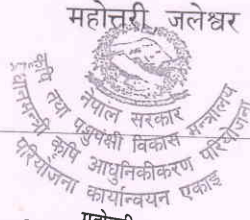 महोत्तरी, जलेश्वर
नेपाल सरकार
कृषि तथा पशुपंक्षी विकास मन्त्रालय
प्रधानमन्त्री कृषि आधुनिकीकरण परियोजना
परियोजना कार्यान्वयन एकाइ
महोत्तरी